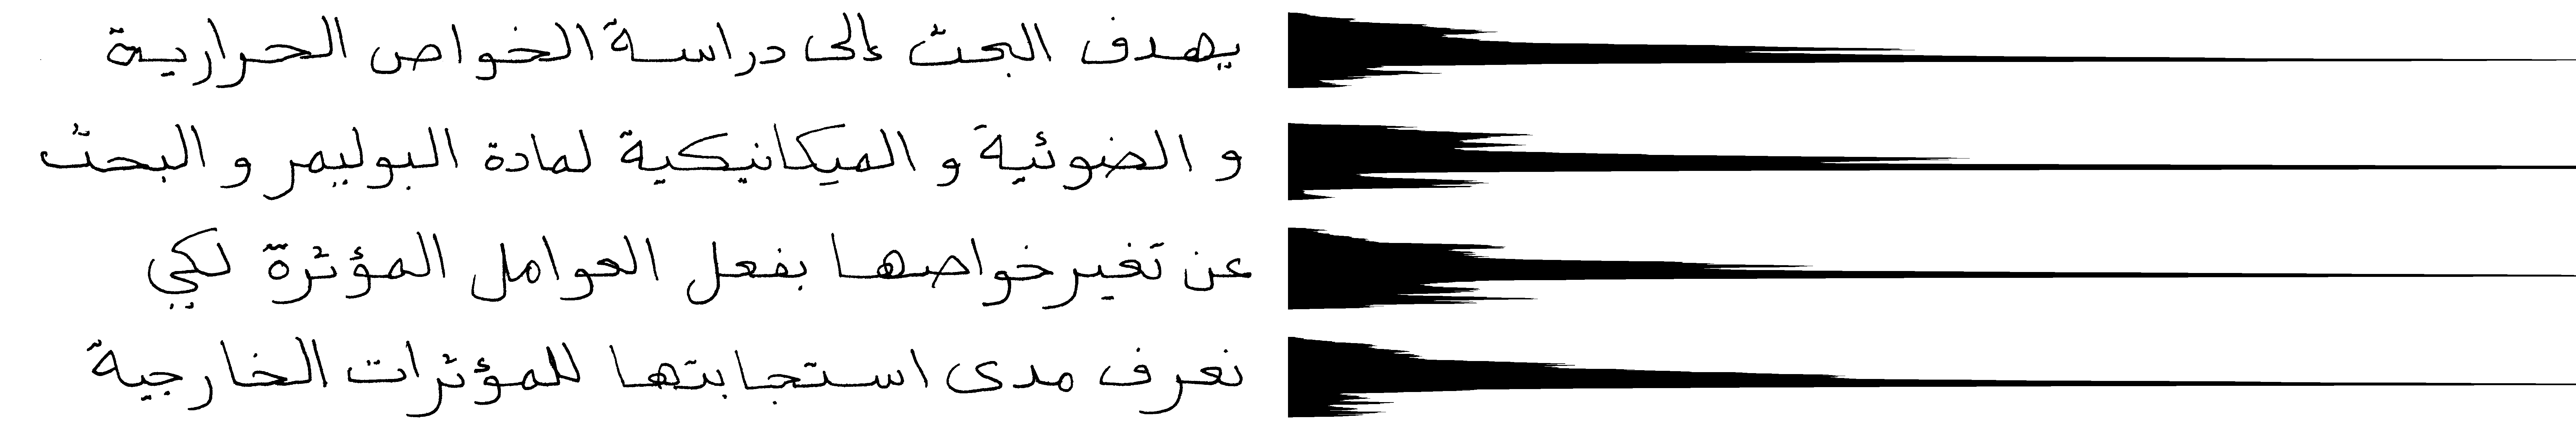 يهدف البحث إلى دراسة الخواص الحرارية
و الضوئية و الميكانيكية لمادة البوليمر و البحث
عن تغير خواصها بفعل العوامل المؤثرة لكي
نعرف مدى استجابتها للمؤثرات الخارجية